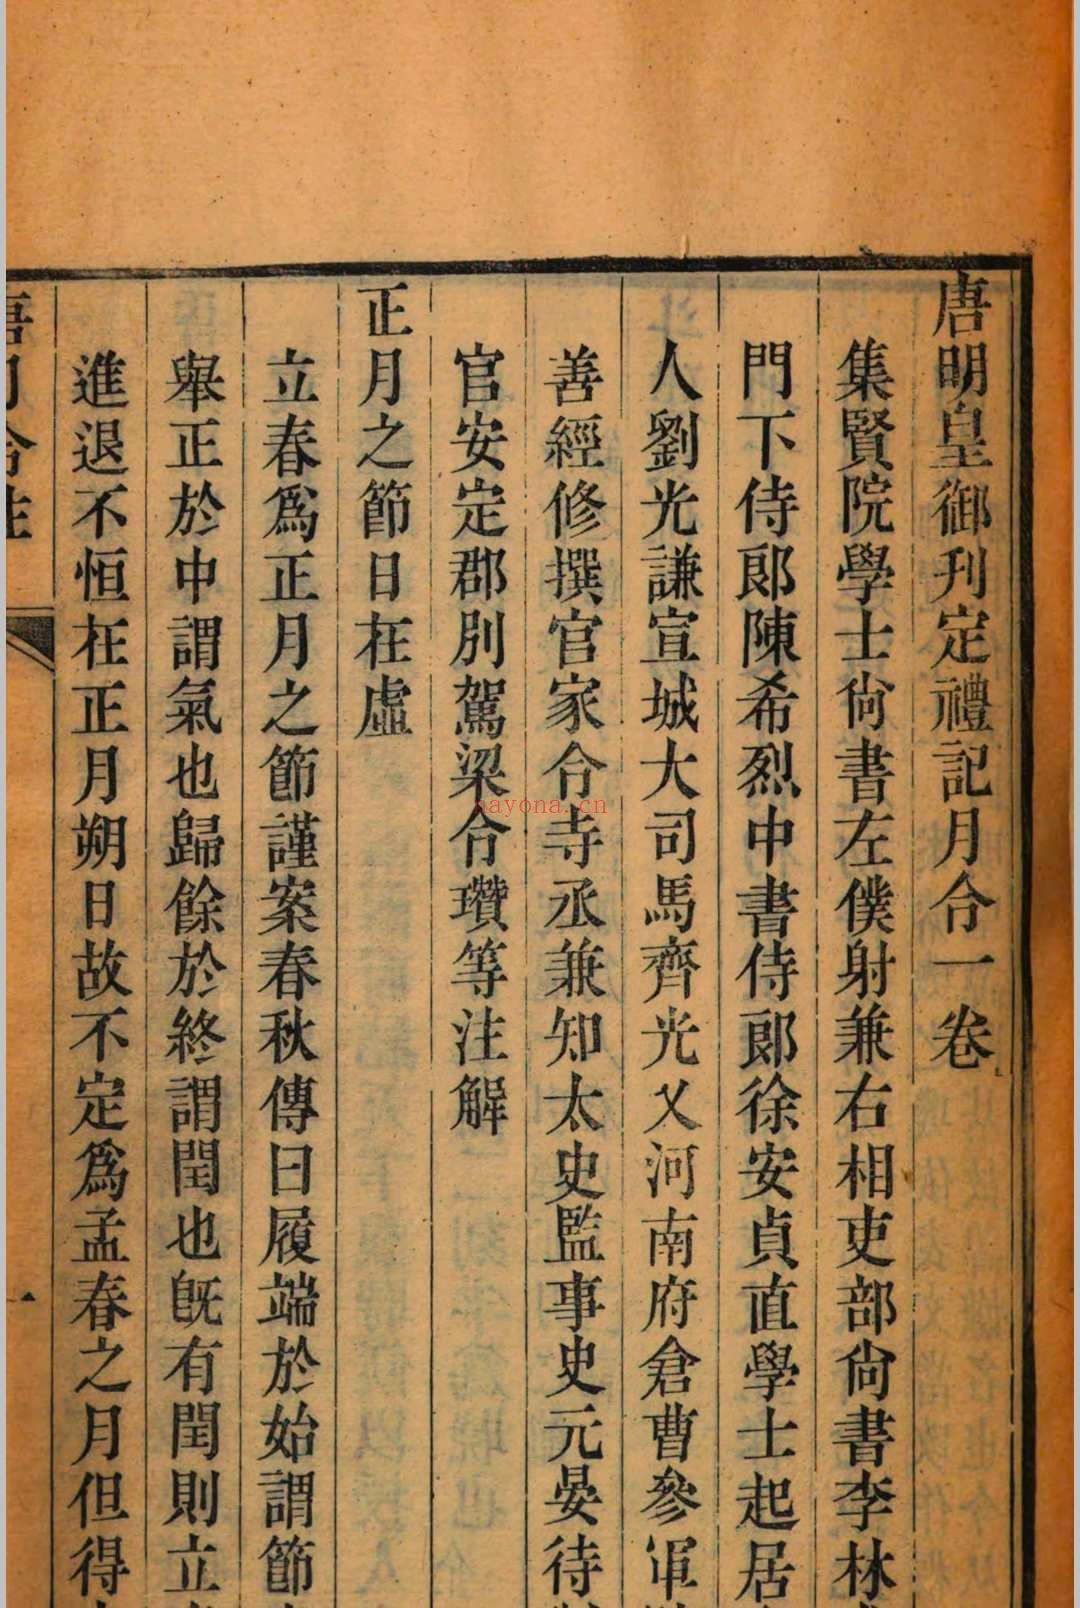 唐明皇御刊定禮記月令一卷
集賢院學士尙書左僕射兼右相吏部尙書李林
門下侍郎陳希烈中書侍郎徐安貞直學士起居
人劉光謙宣城大司馬齊光乂河南府倉曹參軍
善經修撰官家令寺丞兼知太史監事史元晏待
官安定郡別駕梁令瓚等注解
正月之節日在虛
立春爲正月之節謹案春秋傳曰履端於始謂節
舉正於中謂氣也歸餘於終謂閏也旣有閏則立
進退不恒在正月朔日故不定爲孟春之月但得
唐月令注
一
nayona.cn